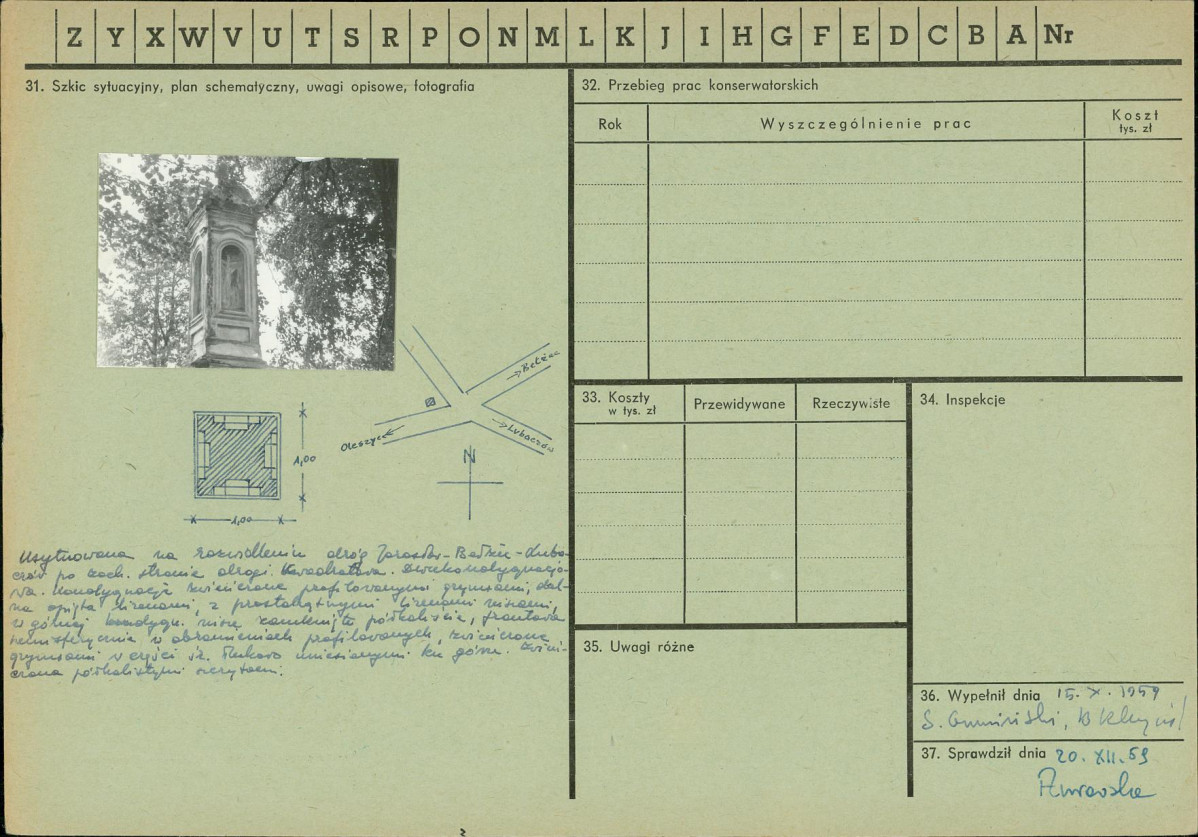 Z Y X W V U T S R P O N M L K J I H G F E D C B A Nr
31. Szkic sytuacyjny, plan schematyczny, uwagi opisowe, fotografia
Bełżec
Lubaczów
Oleszyce
N
1,00
1,00
Usytuowana na rozwidleniu dróg Jarosław - Bełżec - Luba-
czów po zach. stronie drogi. Kwadratowa. Dwukondygnacjo-
wa. Kondygnacje zwieńczone profilowanymi gzymsami, dol-
na opięta lizenami, z prostokątnymi niszami,
w górnej kondygn. nisze zamknięte półkoliście, frontowa
hemisferycznie w obramieniach profilowanych, zwieńczone
gzymsami w części śr. łukowo uniesionymi ku górze. Zwień-
czona półkolistymi szczytami.
32. Przebieg prac konserwatorskich
Rok
Wyszczególnienie prac
Koszt
tys. zł
33. Koszty
w tys. zł
Przewidywane
Rzeczywiste
34. Inspekcje
35. Uwagi różne
36. Wypełnił dnia 15. X. 1959
S.
37. Sprawdził dnia 20. XII. 59